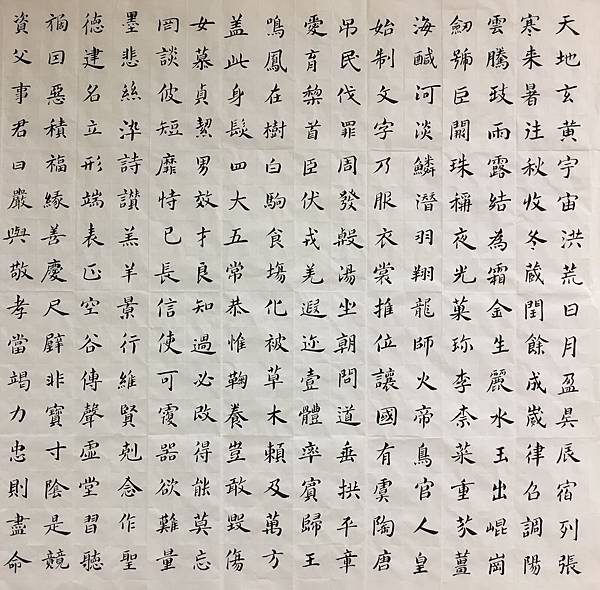 天地玄黄宇宙洪荒日月盈昃辰宿列張
寒来暑往秋收冬蔵閏餘成歳律召調陽
雲騰致雨露結為霜金生麗水玉出崐崗
劒號巨闕珠稱夜光菓珎李柰菜重芥薑
海醎河淡鱗潛羽翔龍師火帝鳥官人皇
始制文字乃服衣裳推位讓國有虞陶唐
吊民伐罪周發殷湯坐朝問道垂拱平章
愛育黎首臣伏戎羌遐迩壹體率賓歸王
鳴鳳在樹白駒食場化被草木賴及萬方
盖此身髮四大五常恭惟鞠養豈敢毀傷
女慕貞潔男效才良知過必改得能莫忘
罔談彼短靡恃己長信使可覆器欲難量
墨悲絲染詩讃羔羊景行維賢剋念作聖
德建名立形端表正空谷傳聲虚堂習聽
禍因惡積福緣善慶尺璧非寶寸陰是競
資父事君曰嚴與敬孝當竭力忠則盡命